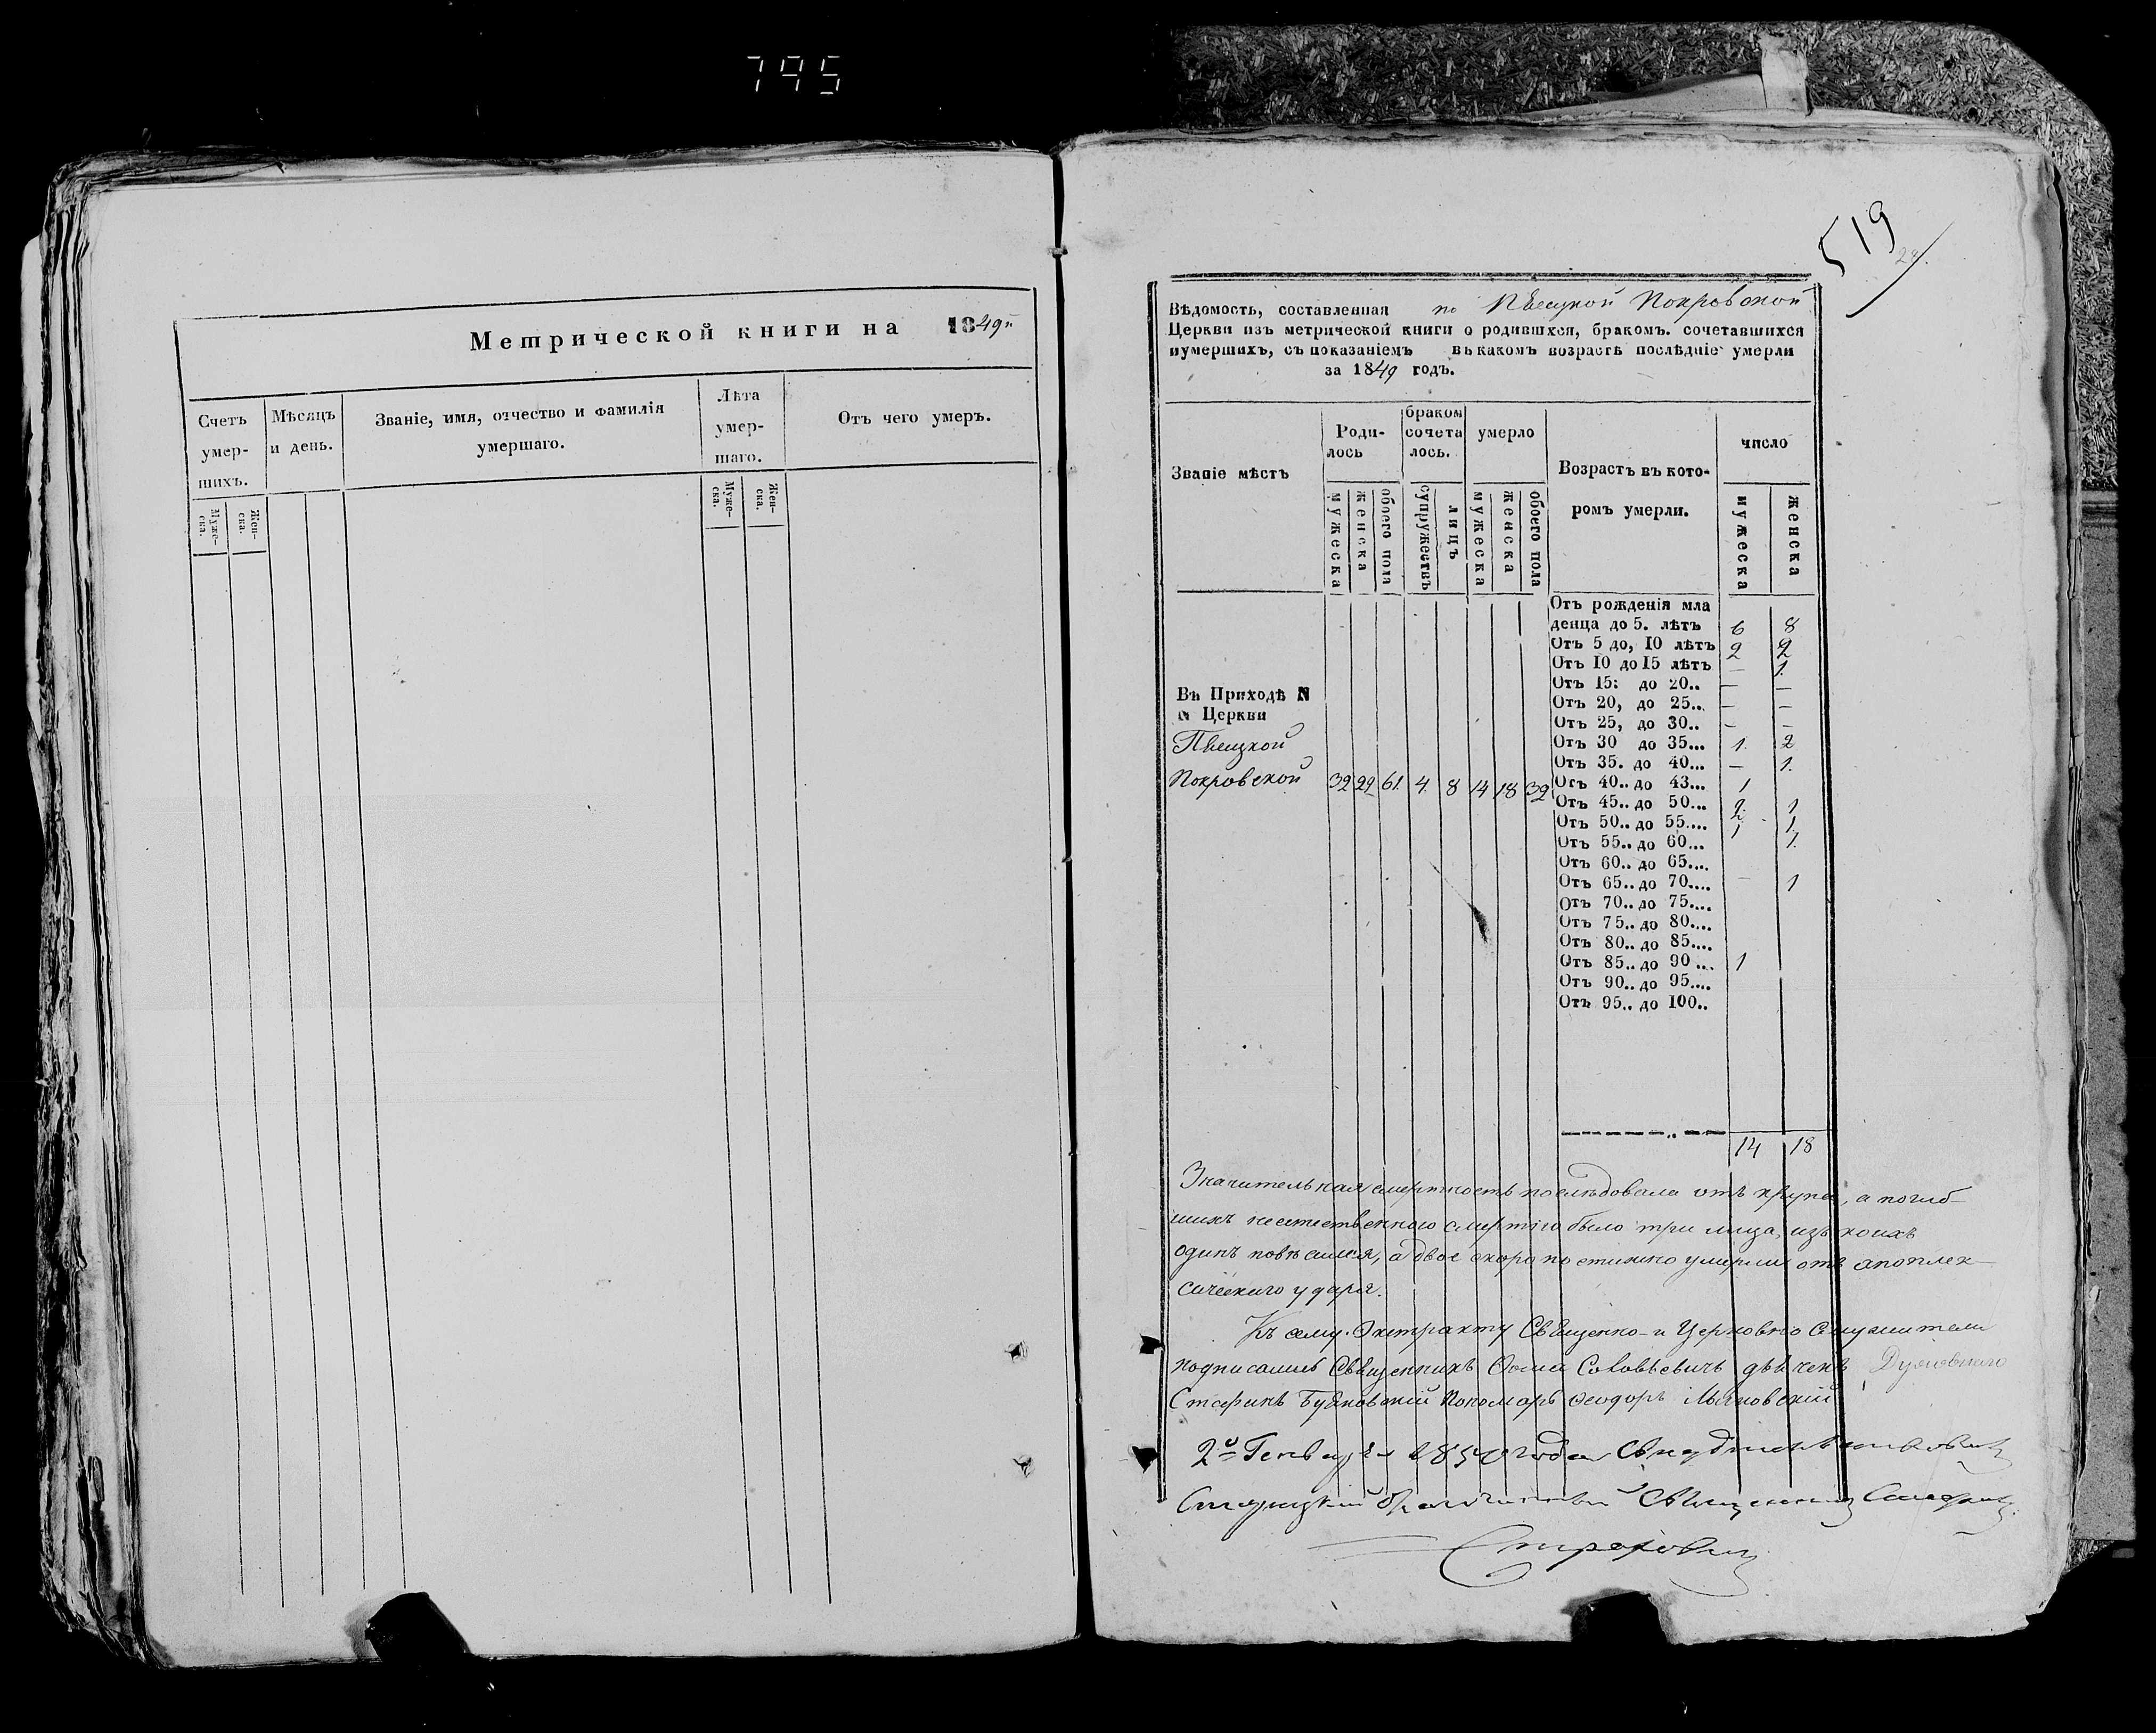 795
Метрической книги на 1849й
Счетъ умер- шихъ.
Мѣсяцъ и день.
Званіе, имя, отчество и фамилія умершаго.
Лѣта умер- шаго.
Отъ чего умеръ.
Муже- ска.
Жен- ска.
Муже- ска.
Жен- ска.
519
Вѣдомость, составленная по Покровской
Церкви изъ метрической книги о родившхся, бракомъ. сочетавшихся
иумершихъ, съ показаніемъ въ какомъ возрастѣ послѣдніе умерли
за 1849 годъ.
Званіе мѣстъ
Роди- лось
браком сочета лось.
умерло
Возрастъ въ кото- ромъ умерли.
число
мужеска
женска
обоего пола
супружествъ
лицъ
мужеска
женска
обоего пола
мужеска
женска
Отъ рожденія мла
денца до 5. лѣтъ 6 8
Отъ 5 до, 10 лѣтъ 2 2
Отъ 10 до 15 лѣтъ — 1.
Отъ 15: до 20.. — —
Отъ 20, до 25... — —
Отъ 25, до 30.. — —
Отъ 30 до 35... 1. 2
Отъ 35. до 40... — 1.
Отъ 40.. до 43... 1
Отъ 45.. до 50... 2. 1
Отъ 50.. до 55.... 1 1.
Отъ 55.. до 60... 1.
Отъ 60.. до 65....
Отъ 65.. до 70.... — 1
Отъ 70.. до 75....
Отъ 75.. до 80....
Отъ 80.. до 85....
Отъ 85.. до 90 ... 1
Отъ 90.. до 95....
Отъ 95.. до 100..
14 18
Въ Приходѣ N
N Церкви
Покровской 32 29 61. 4. 8 14 18 32
Значительная смертность послѣдовала отъ крупа, а погиб-
шихъ неестественною смертію было три лица, изъ коихъ
одинъ повѣсился, а двое скоропостижно умерли отъ апоплек-
сическаго удара.
Къ сему Экстракту Священно- и Церковно служители
подписались Священникъ
Пономарь Ѳеодоръ
2го Генваря 1850 года
Священникъ